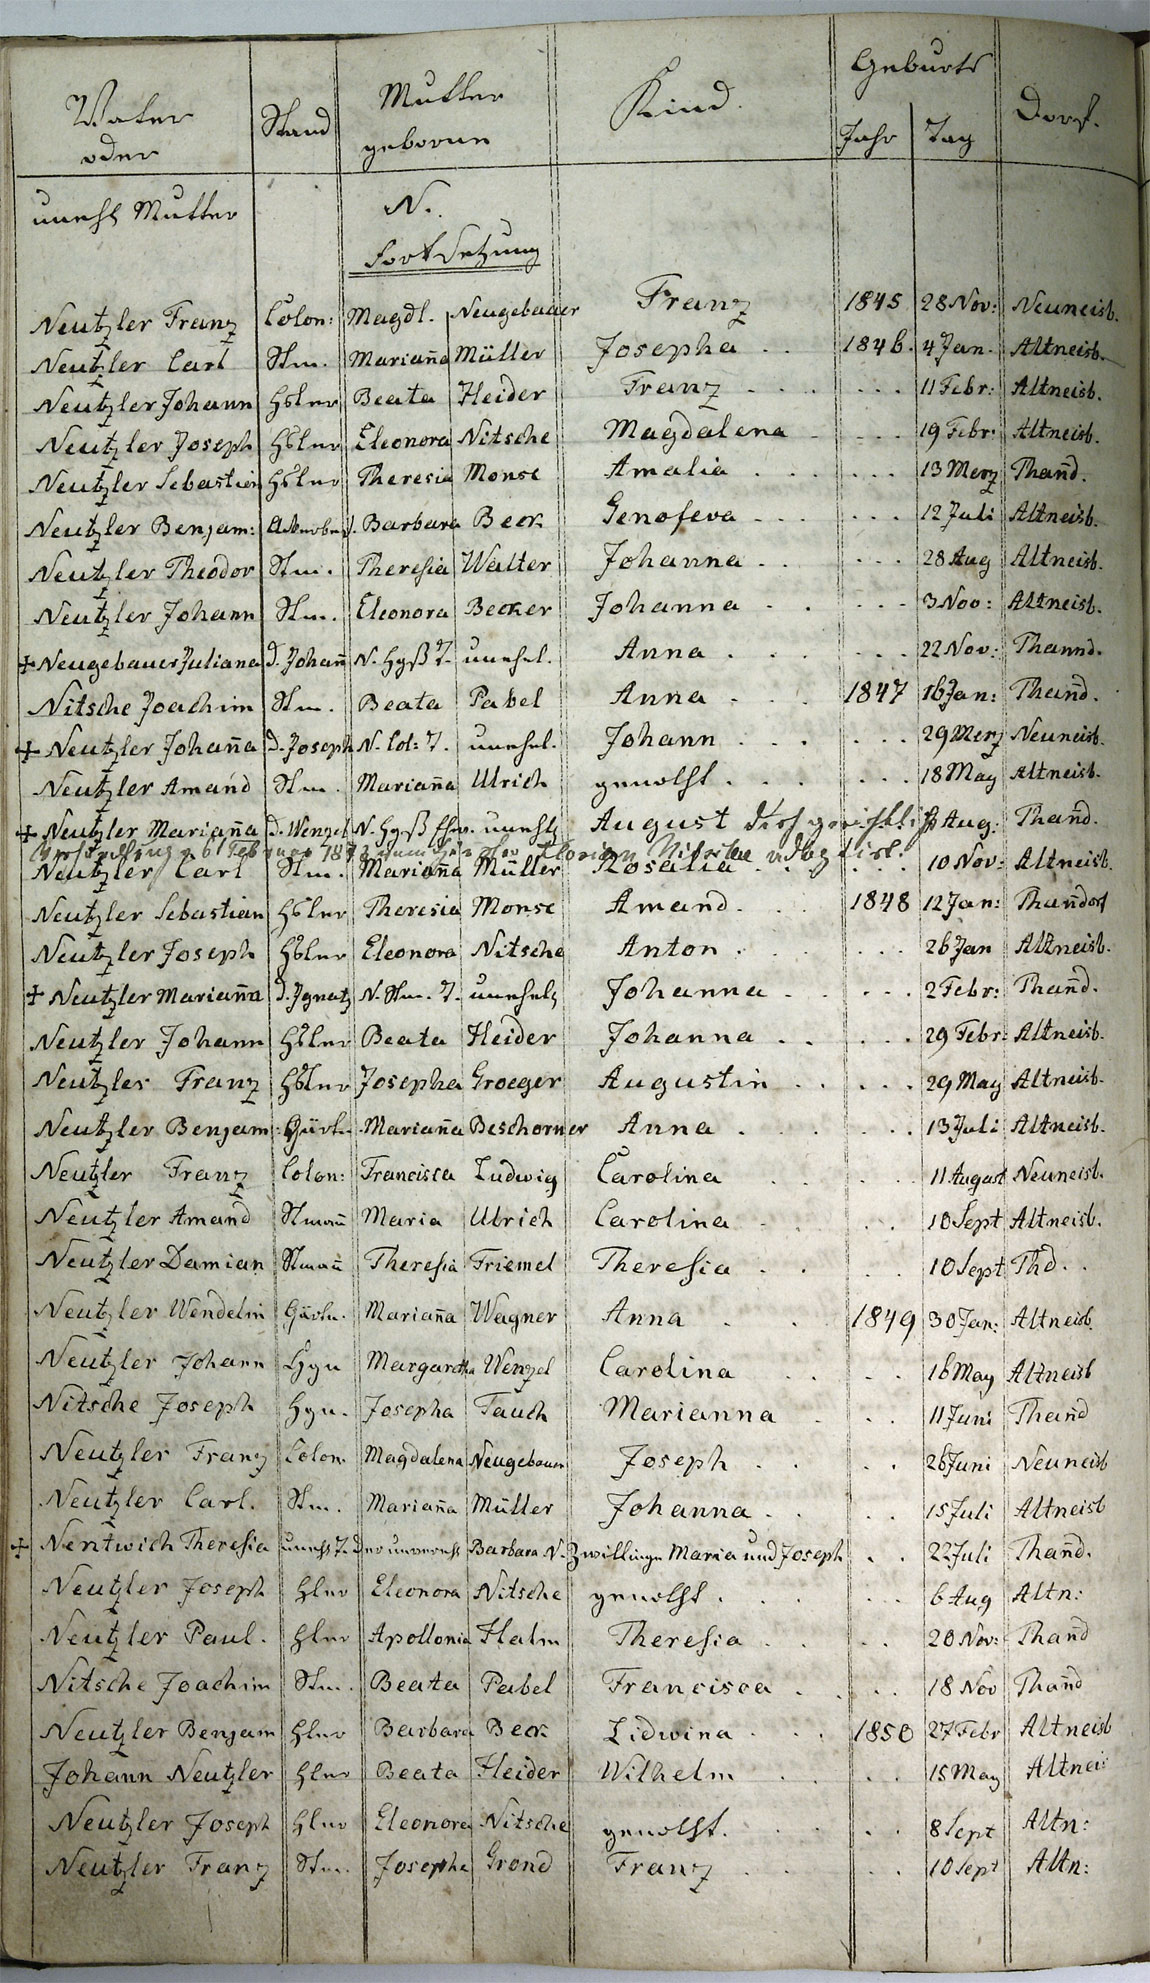 Vater oder Stand Mutter geboren Kind. Geburts Jahr Tag Dorf.
unehl Mutter N.
Fortsetzung
Neutzler Franz Colon: Magdl. Neugebauer Franz 1845 28 Nov: Neuneisb.
Neutzler Carl Stm. Mariana Müller Josepha . . 1846. 4 Jan. Altneisb.
Neutzler Johann Hslr Beata Heider Franz . . . . . . 11 Febr: Altneisb.
Neutzler Joseph Hslr Eleonora Nitsche Magdalena . . . . 19 Febr: Altneisb.
Neutzler Sebastian Hslr Theresia Monse Amalia . . . . . . 13 Merz Thand.
Neutzler Benjam: Barbara Beck Genofeva . . . . . . 12 Juli Altneisb.
Neutzler Theodor Stm. Theresia Walter Johanna . . . . . 28 Aug Altneisb.
Neutzler Johann Stm. Eleonora Becker Johanna . . . . . 3 Nov: Altneisb.
+ Neugebauer Juliana d. Johann N. Hgß T. unehel. Anna . . . . . . 22 Nov: Thannd.
Nitsche Joachim Stm. Beata Pabel Anna . . . 1847 16 Jan: Thand.
+ Neutzler Johana d. Joseph N. Col: T. unehel. Johann . . . . . . 29 Merz Neuneisb.
Neutzler Amand Stm. Mariana Ulrich genothft . . . . . . 18 May Altneisb.
+ Neutzler Mariana d. Wenzel N. Hgß unehl August Aug: Thand.
Florian Nitsche
Neutzler Carl Stm. Mariana Müller Rosalia . . . . . . 10 Nov: Altneisb.
Neutzler Sebastian Hslr Theresia Monse Amand. . . . 1848 12 Jan: Thandorf
Neutzler Joseph Hslr Eleonora Nitsche Anton . . . . . . 26 Jan Altneisb.
+ Neutzler Mariana d. Ignatz N. Stm. T. unehel Johanna . . . . . 2 Febr: Thand.
Neutzler Johann Hslr Beata Heider Johanna . . . . . 29 Febr: Altneisb.
Neutzler Franz Hslr Josepha Groeger Augustin . . . . . 29 May Altneisb.
Neutzler Benjam: Gärtn. Mariana Beschorner Anna . . . . . . 13 Juli Altneisb.
Neutzler Franz Colon: Francisca Ludwig Carolina . . . . 11 August Neuneisb.
Neutzler Amand Stman Maria Ulrich Carolina . . . . 10 Sept Altneisb.
Neutzler Damian Stman Theresia Friemel Theresia . . . . 10 Sept Thd. .
Neutzler Wendelin Gärtn. Mariana Wagner Anna . . . 1849 30 Jan: Altneisb.
Neutzler Johann Hgn Margaretha Wenzel Carolina . . . . 16 May Altneisb
Nitsche Joseph Hgn. Josepha Tauch Marianna . . . 11 Juni Thand
Neutzler Franz Colon. Magdalena Neugebauer Joseph . . . . 26 Juni Neuneisb
Neutzler Carl. Stm. Mariana Müller Johanna . . . . 15 Juli Altneisb
+ Nentwich Theresia unehl T. der unverehl Barbara N. Zwillinge Maria und Joseph . . 22 Juli Thand.
Neutzler Joseph Hlr Eleonora Nitsche genothft . . . . . . 6 Aug Altn:
Neutzler Paul. Hlr Apollonia Halm Theresia . . . . 20 Nov: Thand
Nitsche Joachim Stm. Beata Pabel Francisca . . . . 18 Nov Thand
Neutzler Benjam Hlr Barbara Beck Lidwina . . . 1850 27 Febr Altneisb
Johann Neutzler Hlr Beata Heider Wilhelm . . . . . 15 May Altneis
Neutzler Joseph Hlr Eleonora Nitsche genothft. . . . . . 8 Sept Altn:
Neutzler Franz Stm. Josepha Grond Franz . . . . . 10 Sept Altn: